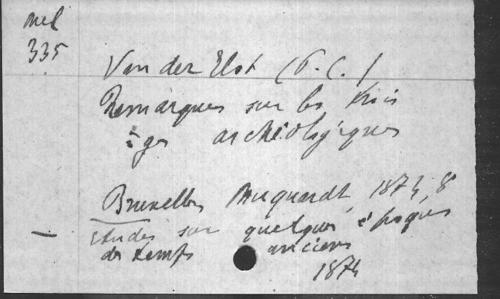 Mel
335
Van der Elst (P. C.)
Remarques sur les trois
âges archéologiques
Bruxelles, Muquardt, 1874, 8°
— Etudes sur quelques époques
des temps anciens
1874